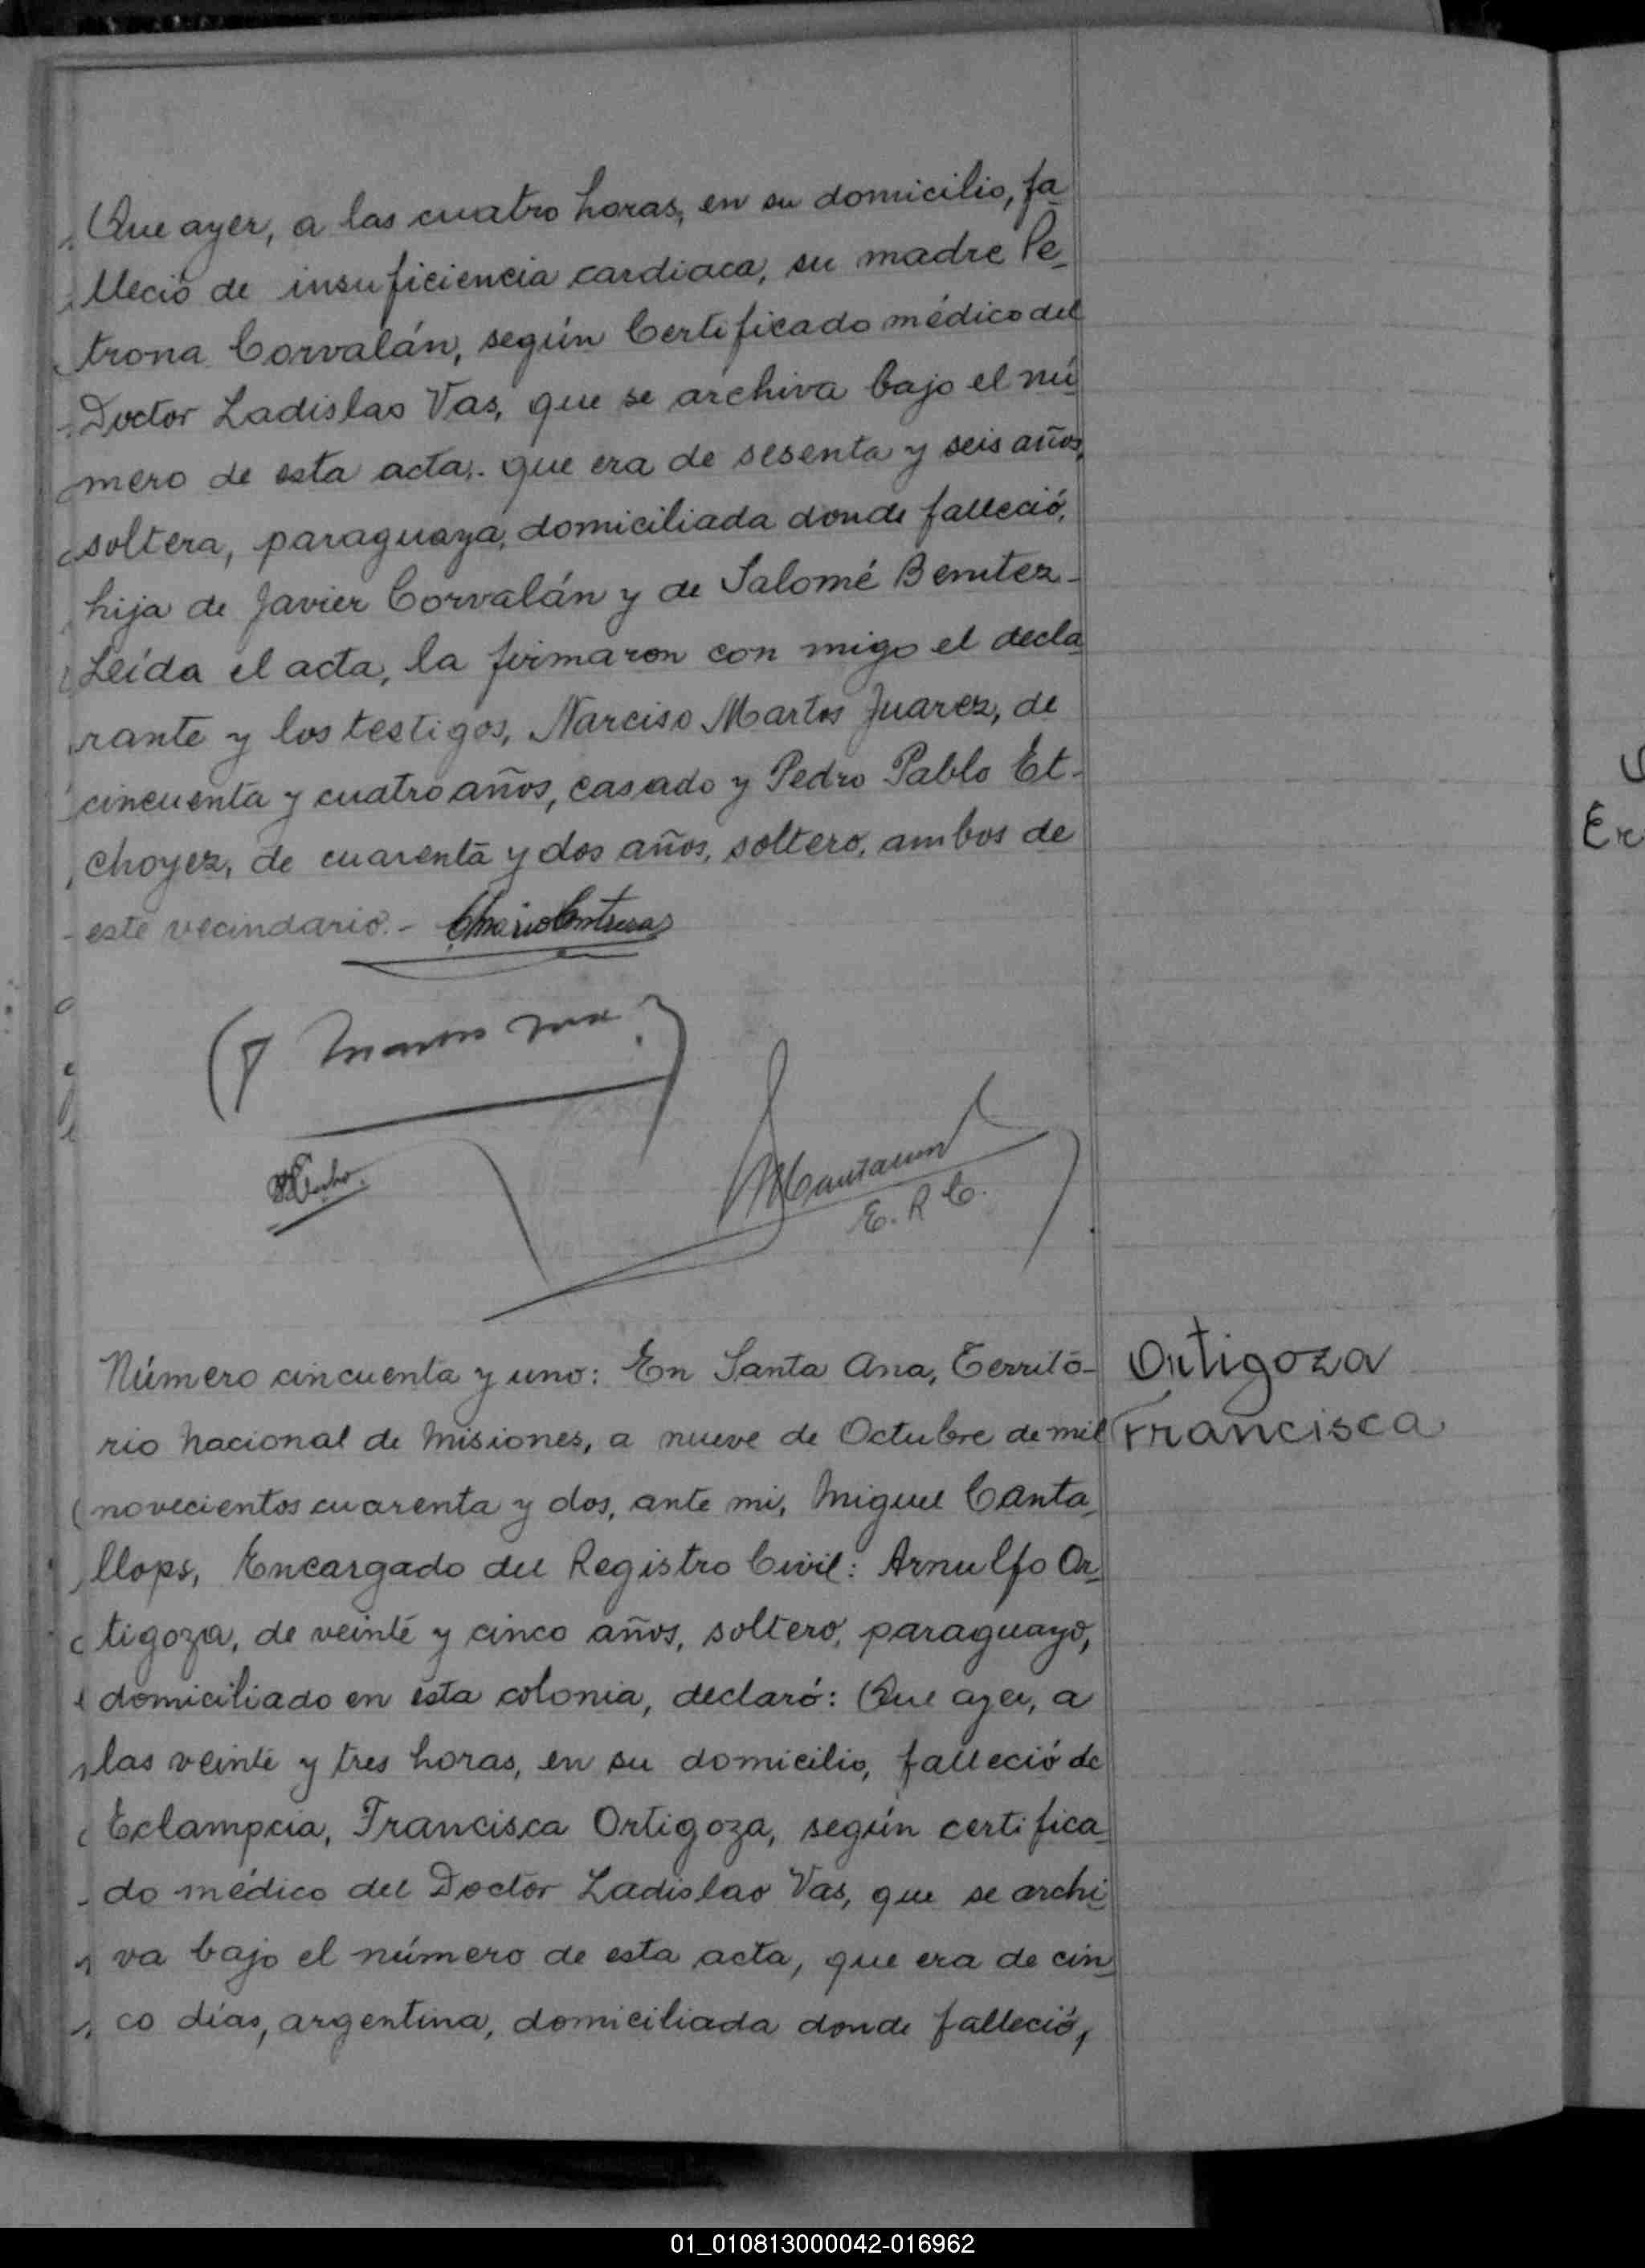 Que ayer, a las cuatro horas, en su domicilio, fa-
lleció de insuficiencia cardiaca, su madre Pe-
trona Corvalán, según Certificado médico del
Doctor Ladislao Vas, que se archiva bajo el nú-
mero de esta acta,. que era de sesenta y seis años,
soltera, paraguaya, domiciliada donde falleció,
hija de Javier Corvalán y de Salomé Benitez-
Leída el acta, la firmaron con migo el decla-
rante y los testigos, Narciso Martos Juarez, de
cincuenta y cuatro años, casado y Pedro Pablo Et-
choyez, de cuarenta y dos años, soltero, ambos de
este vecindario.-
E. R C.
Número cincuenta y uno: En Santa Ana, Territo-
rio Nacional de Misiones, a nueve de Octubre de mil
novecientos cuarenta y dos, ante mi, Miguel Canta-
llops, Encargado del Registro Civil: Arnulfo Or-
tigoza, de veinte y cinco años, soltero, paraguayo,
domiciliado en esta colonia, declaró: Que ayer, a
las veinte y tres horas, en su domicilio, falleció de
Eclampcia, Francisca Ortigoza, según certifica-
do médico del Doctor Ladislao Vas, que se archi-
va bajo el número de esta acta, que era de cin-
co días, argentina, domiciliada donde falleció,
Ortigoza
Francisca
01_010813000042-016962